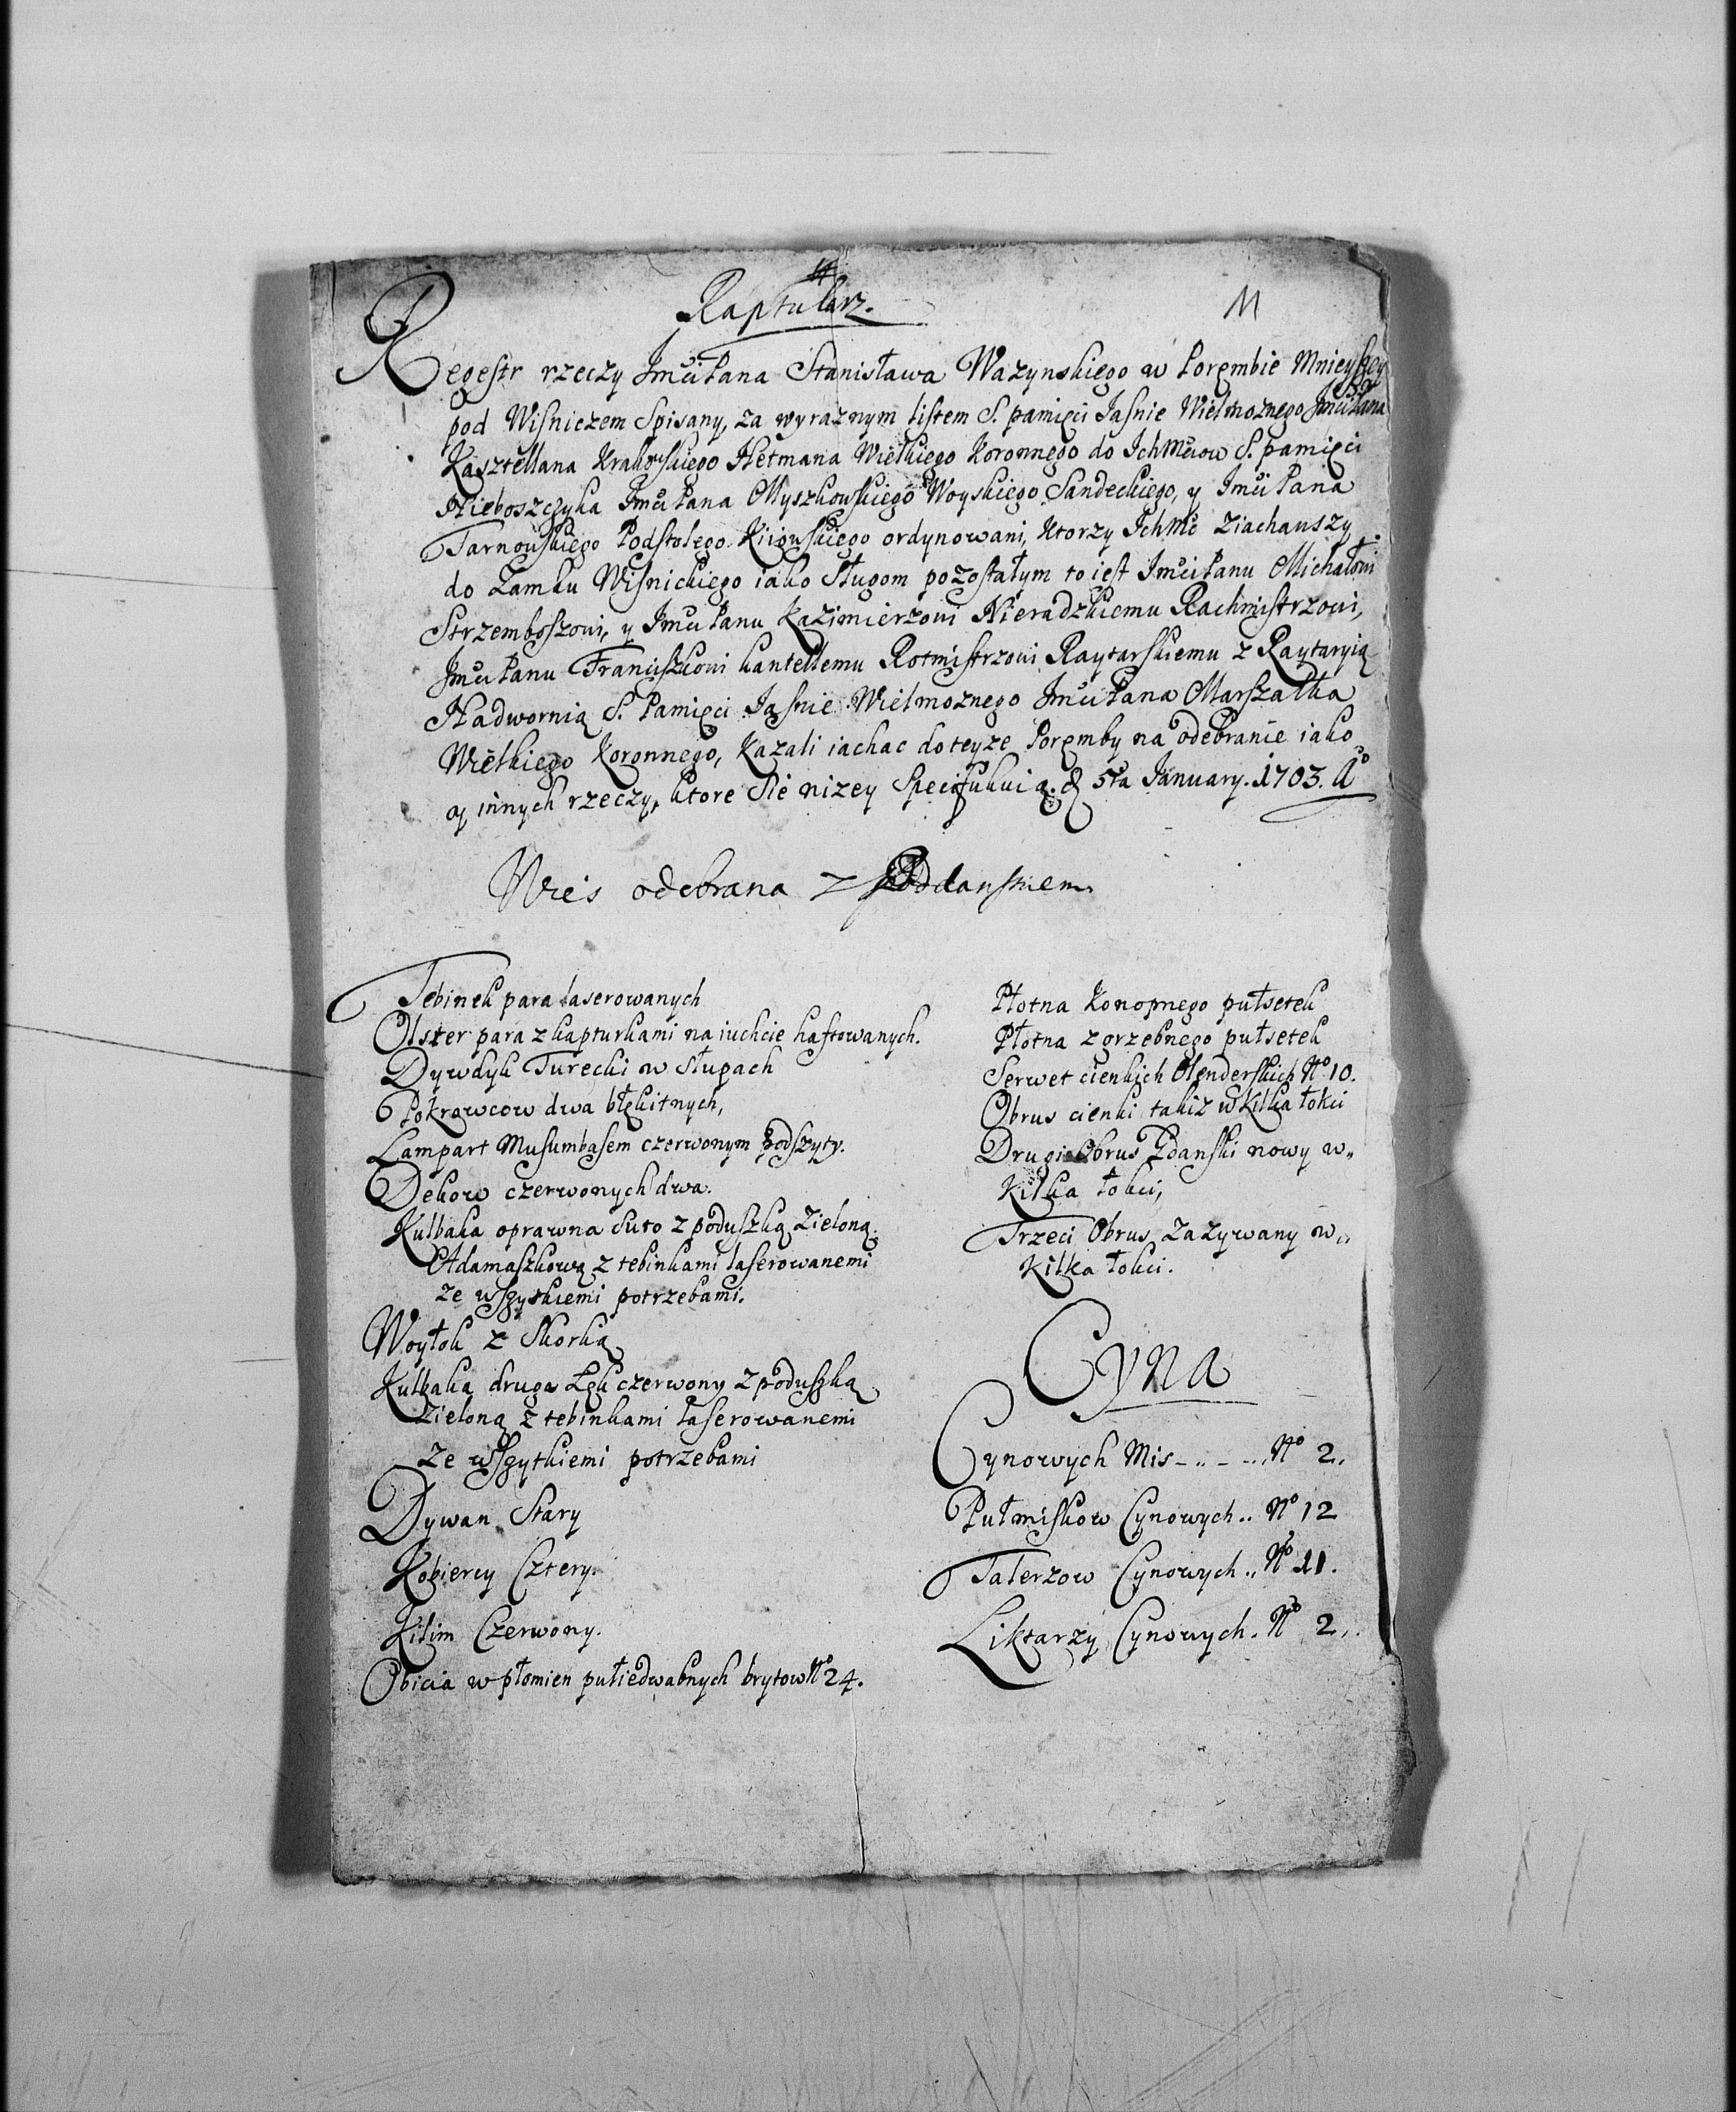 Raptularz.
Regestr rzeczy Jmci Pana Stanisława Wazynskiego w Porembie Mnieyszey
pod Wisniczem Spisany, za wyraznym listem S. pamięci Jasnie Wielmoznego Jmci Pana
Kasztellana Krakowskiego Hetmana Wielkiego Koronnego do Ichmciow S. pamięci
Nieboszczyka Jmci Pana Myszkowskiego Woyskiego Sandeckiego, y Jmci Pana
Tarnowskiego Podstolego Kiiowskiego ordynowani, Ktorzy Ichmc ziachawszy
do Zamku Wisnickiego iako Sługom pozostałym to iest Jmci Panu Michałowi
Strzemboszowi, y Jmci Panu Kazimierzowi Nieradzkiemu Rachmistrzowi,
Jmci Panu Franciszkowi kantellemu Rotmistrzowi Raytarskiemu z Raytaryią
Nadwornią S. Pamięci Jasnie Wielmoznego Jmci Pana Marszałka
Wielkiego Koronnego, Kazali iachac do teyze Poręmby na odebranie iako
y innych rzeczy, ktore Sie nizey Specifikuią. d 5ta January. 1703. Ao
Wies odebrana z Poddanstwem
Tebinek para laserowanych
Olster para z kapturkami na iuchcie haftowanych.
Dywdyk Turecki w Słupach
Pokrowcow dwa błękitnych,
Lampart Musumbasem czerwonym podszyty.
Dekow czerwonych dwa.
Kulbaka oprawna suto z poduszką Zieloną
Adamaszkową z tebinkami laserowanemi
ze wszyskiemi potrzebami.
Woyłok z Skorką
Kulbaka druga Lęk czerwony z poduszką
Zieloną z tebinkami laserowanemi
ze wszytkiemi potrzebami
Dywan Stary
Kobiercy Cztery.
Kilim Czerwony.
Obicia w płomien pułiedwabnych brytow No 24.
Płotna Konopnego pułsetek
Płotna zgrzebnego pułsetek
Serwet cienkich Olenderskich No 10.
Obrus cienki takiz w kilka łokci
Drugi Obrus Gdanski nowy w„
Kilka łokci,
Trzeci Obrus Zazywany w„
Kilka łokci.
Cyna
Cynowych Mis - .. - ... No 2.
Pułmiskow Cynowych .. No 12
Talerzow Cynowych .. No 11.
Liktarzy Cynowych. No 2..